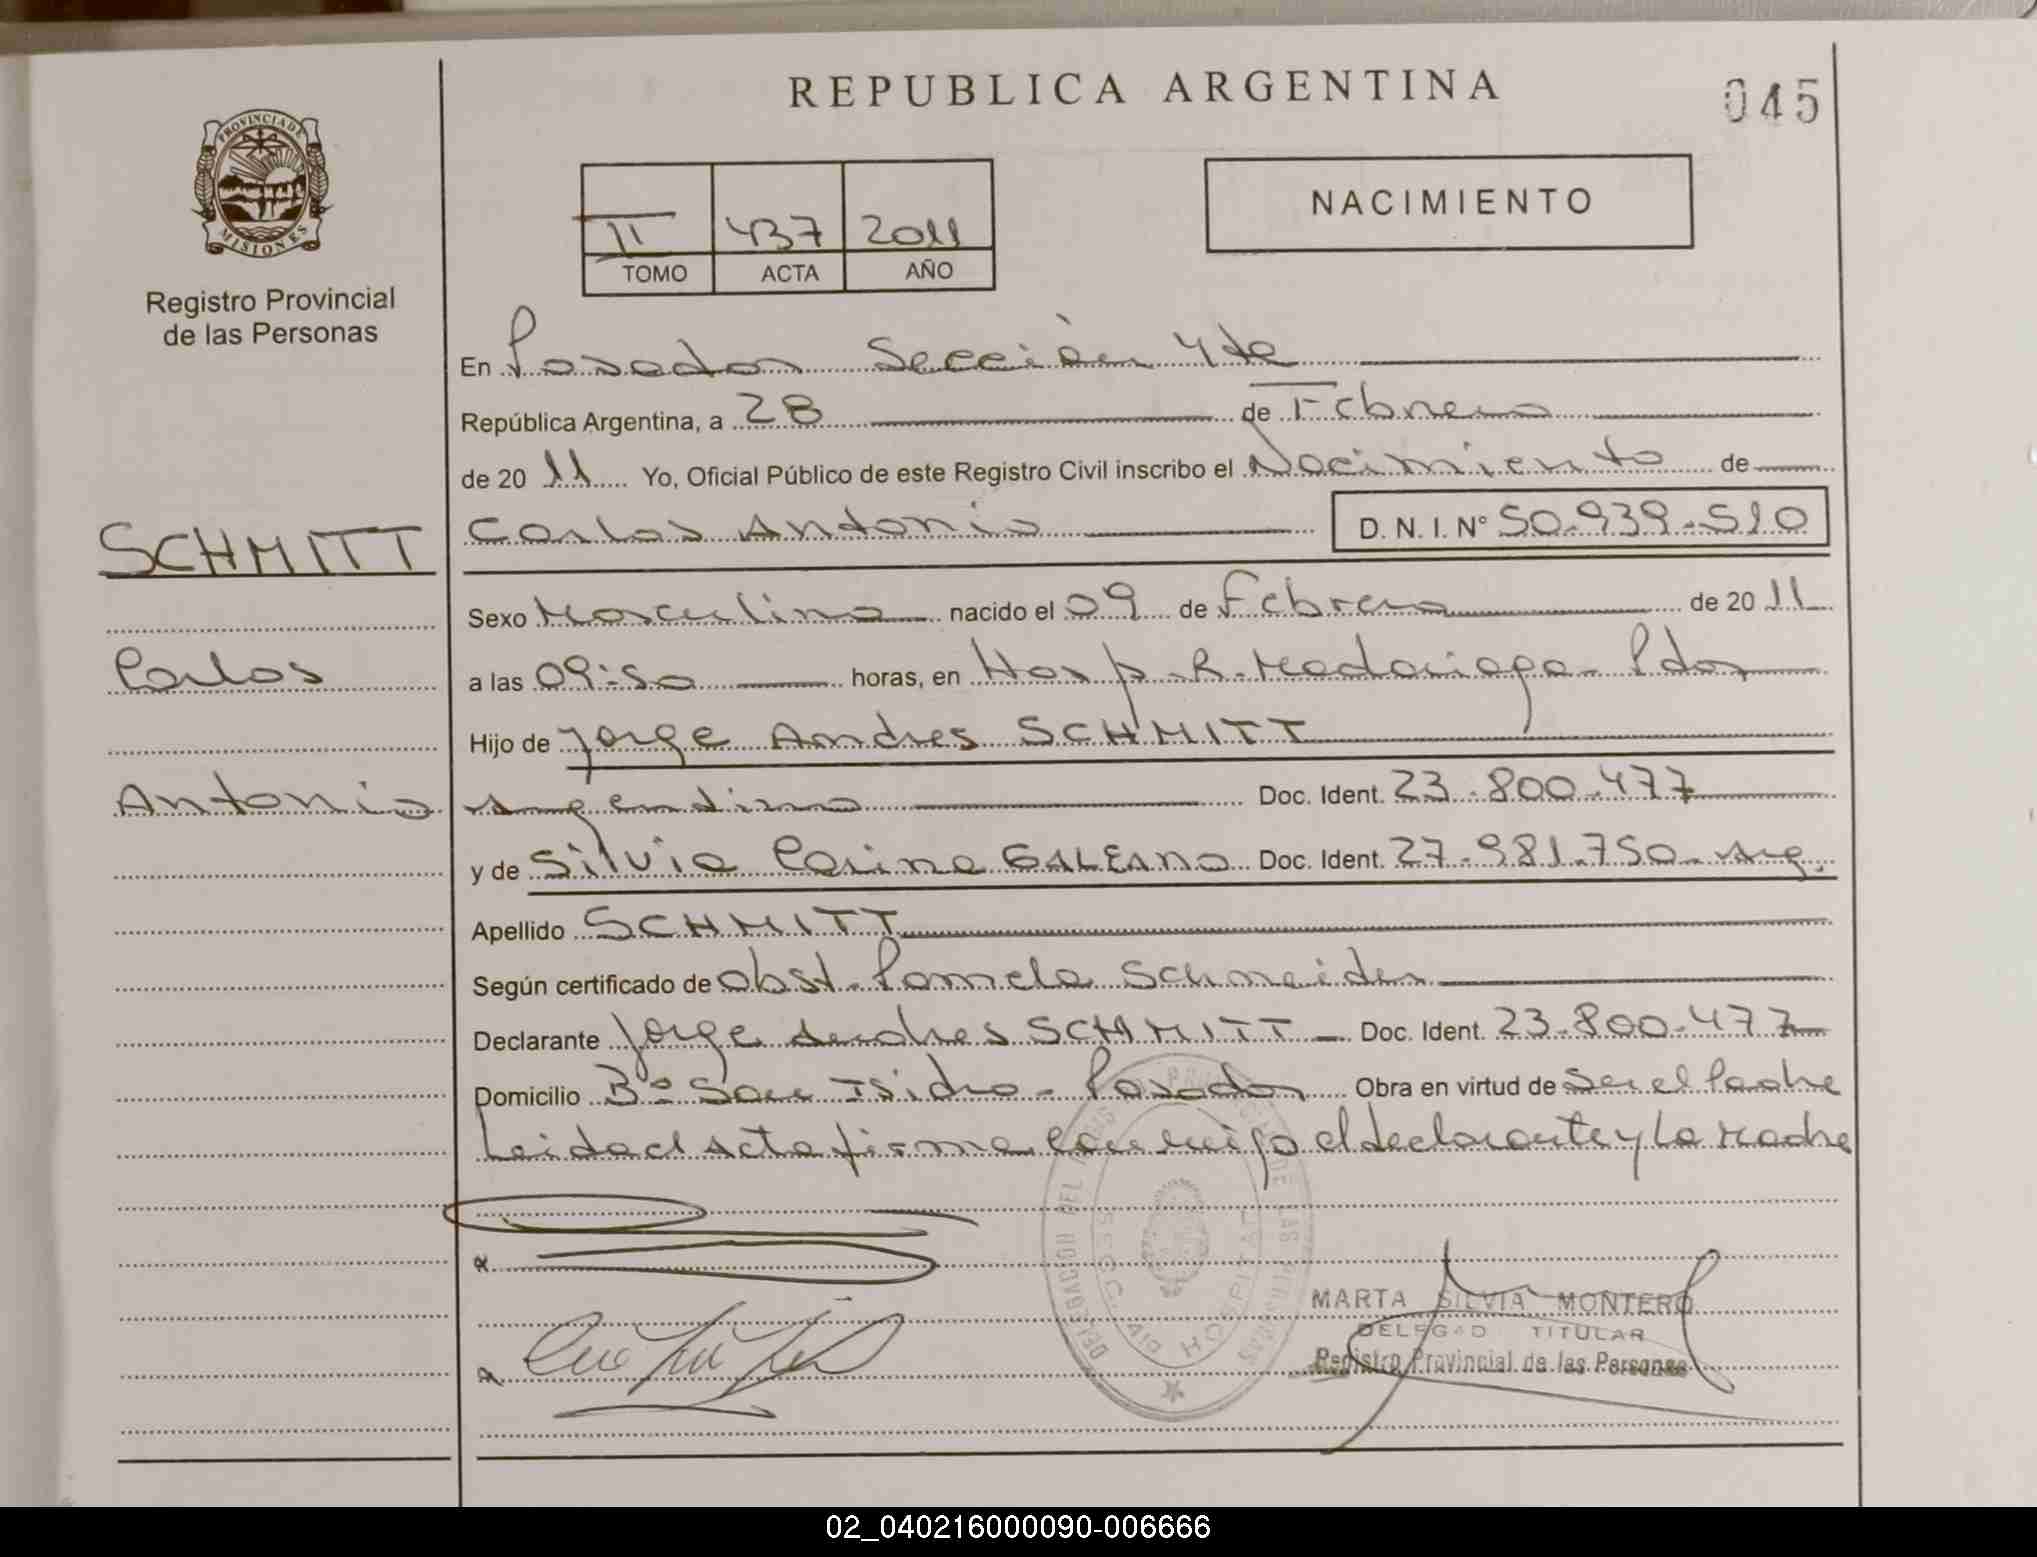 REPUBLICA ARGENTINA
045
PROVINCIA DE
MISIONES
Registro Provincial
de las Personas
II 437 2011
TOMO ACTA AÑO
NACIMIENTO
En Posadas Sección 4ta
República Argentina, a 28 de Febrero
de 20 11 Yo, Oficial Público de este Registro Civil inscribo el Nacimiento de
SCHMITT
Carlos Antonio D. N. I. N° 50.939.510
Sexo Masculino nacido el 09 de Febrero de 20 11
Carlos
a las 09:50 horas, en Hosp. R. Madariaga - Pdas
Hijo de Jorge Andres SCHMITT
Antonio
Argentino Doc. Ident. 23.800.477
y de Silvia Carina GALEANO Doc. Ident. 27.981.750 - Arg.
Apellido SCHMITT
Según certificado de obst. Pamela Schneider
Declarante Jorge Andres SCHMITT Doc. Ident. 23.800.477
Domicilio B° San Isidro - Posadas Obra en virtud de Ser el Padre
Leida el Acta firma conmigo el declarante y la Madre
MARTA SILVIA MONTERO
DELEGAD TITULAR
Registro Provincial de las Personas
02_040216000090-006666